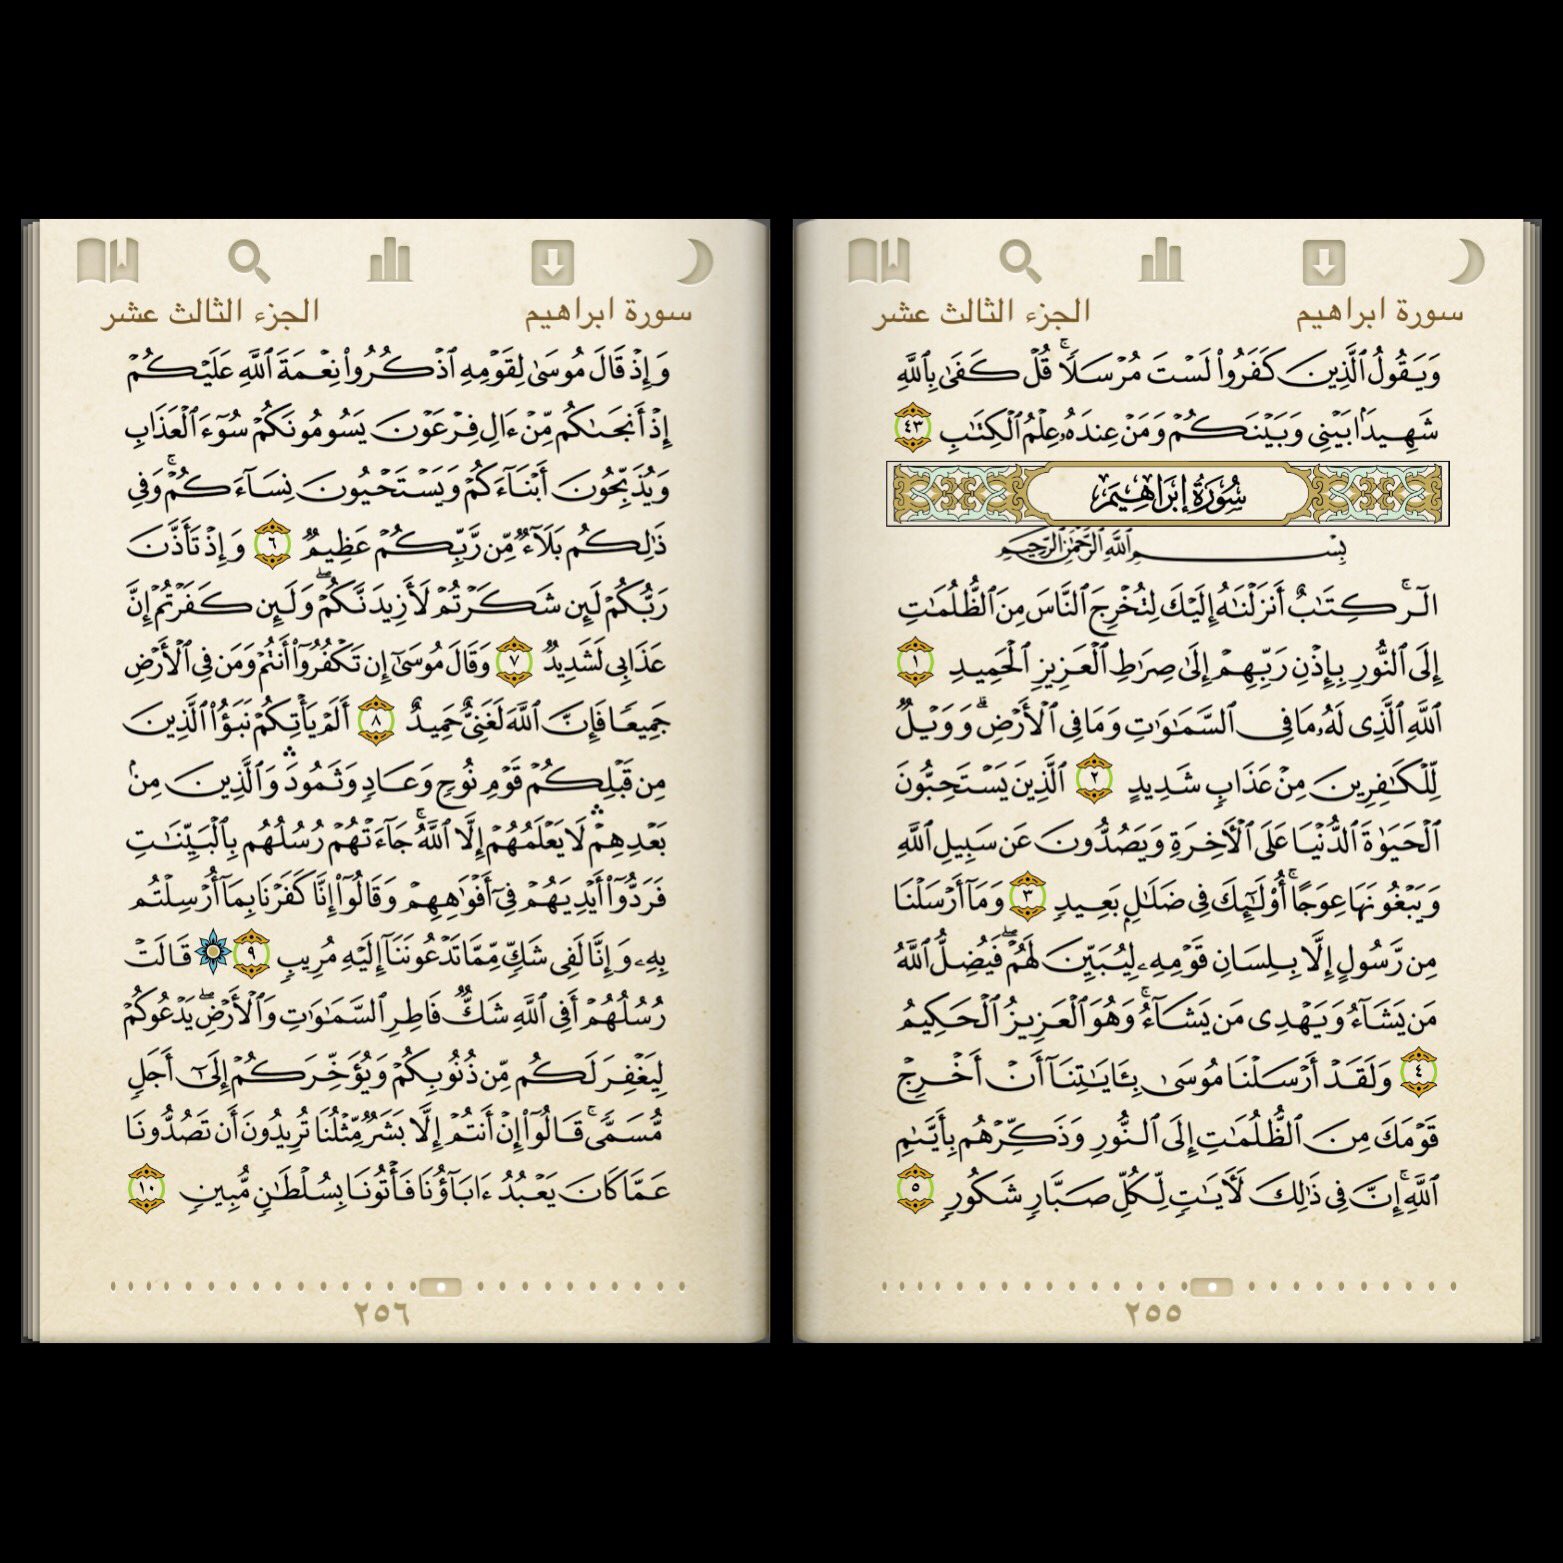 سورة ابراهيم
الجزء الثالث عشر
وَيَقُولُ ٱلَّذِينَ كَفَرُوا۟ لَسْتَ مُرْسَلًا ۚ قُلْ كَفَىٰ بِٱللَّهِ
شَهِيدًۢا بَيْنِى وَبَيْنَكُمْ وَمَنْ عِندَهُۥ عِلْمُ ٱلْكِتَٰبِ ٤٣
سُورَةُ إِبْرَاهِيمَ
بِسْمِ ٱللَّهِ ٱلرَّحْمَٰنِ ٱلرَّحِيمِ
الٓر ۚ كِتَٰبٌ أَنزَلْنَٰهُ إِلَيْكَ لِتُخْرِجَ ٱلنَّاسَ مِنَ ٱلظُّلُمَٰتِ
إِلَى ٱلنُّورِ بِإِذْنِ رَبِّهِمْ إِلَىٰ صِرَٰطِ ٱلْعَزِيزِ ٱلْحَمِيدِ ١
ٱللَّهِ ٱلَّذِى لَهُۥ مَا فِى ٱلسَّمَٰوَٰتِ وَمَا فِى ٱلْأَرْضِ ۗ وَوَيْلٌ
لِّلْكَٰفِرِينَ مِنْ عَذَابٍ شَدِيدٍ ٢ ٱلَّذِينَ يَسْتَحِبُّونَ
ٱلْحَيَوٰةَ ٱلدُّنْيَا عَلَى ٱلْـَٔاخِرَةِ وَيَصُدُّونَ عَن سَبِيلِ ٱللَّهِ
وَيَبْغُونَهَا عِوَجًا ۚ أُو۟لَٰٓئِكَ فِى ضَلَٰلٍۭ بَعِيدٍ ٣ وَمَآ أَرْسَلْنَا
مِن رَّسُولٍ إِلَّا بِلِسَانِ قَوْمِهِۦ لِيُبَيِّنَ لَهُمْ ۖ فَيُضِلُّ ٱللَّهُ
مَن يَشَآءُ وَيَهْدِى مَن يَشَآءُ ۚ وَهُوَ ٱلْعَزِيزُ ٱلْحَكِيمُ
٤ وَلَقَدْ أَرْسَلْنَا مُوسَىٰ بِـَٔايَٰتِنَآ أَنْ أَخْرِجْ
قَوْمَكَ مِنَ ٱلظُّلُمَٰتِ إِلَى ٱلنُّورِ وَذَكِّرْهُم بِأَيَّىٰمِ
ٱللَّهِ ۚ إِنَّ فِى ذَٰلِكَ لَـَٔايَٰتٍ لِّكُلِّ صَبَّارٍ شَكُورٍ ٥
٢٥٥
سورة ابراهيم
الجزء الثالث عشر
وَإِذْ قَالَ مُوسَىٰ لِقَوْمِهِ ٱذْكُرُوا۟ نِعْمَةَ ٱللَّهِ عَلَيْكُمْ
إِذْ أَنجَىٰكُم مِّنْ ءَالِ فِرْعَوْنَ يَسُومُونَكُمْ سُوٓءَ ٱلْعَذَابِ
وَيُذَبِّحُونَ أَبْنَآءَكُمْ وَيَسْتَحْيُونَ نِسَآءَكُمْ ۚ وَفِى
ذَٰلِكُم بَلَآءٌ مِّن رَّبِّكُمْ عَظِيمٌ ٦ وَإِذْ تَأَذَّنَ
رَبُّكُمْ لَئِن شَكَرْتُمْ لَأَزِيدَنَّكُمْ ۖ وَلَئِن كَفَرْتُمْ إِنَّ
عَذَابِى لَشَدِيدٌ ٧ وَقَالَ مُوسَىٰٓ إِن تَكْفُرُوٓا۟ أَنتُمْ وَمَن فِى ٱلْأَرْضِ
جَمِيعًا فَإِنَّ ٱللَّهَ لَغَنِىٌّ حَمِيدٌ ٨ أَلَمْ يَأْتِكُمْ نَبَؤُا۟ ٱلَّذِينَ
مِن قَبْلِكُمْ قَوْمِ نُوحٍ وَعَادٍ وَثَمُودَ ۛ وَٱلَّذِينَ مِنۢ
بَعْدِهِمْ ۛ لَا يَعْلَمُهُمْ إِلَّا ٱللَّهُ ۚ جَآءَتْهُمْ رُسُلُهُم بِٱلْبَيِّنَٰتِ
فَرَدُّوٓا۟ أَيْدِيَهُمْ فِىٓ أَفْوَٰهِهِمْ وَقَالُوٓا۟ إِنَّا كَفَرْنَا بِمَآ أُرْسِلْتُم
بِهِۦ وَإِنَّا لَفِى شَكٍّ مِّمَّا تَدْعُونَنَآ إِلَيْهِ مُرِيبٍ ٩ ۞ قَالَتْ
رُسُلُهُمْ أَفِى ٱللَّهِ شَكٌّ فَاطِرِ ٱلسَّمَٰوَٰتِ وَٱلْأَرْضِ ۖ يَدْعُوكُمْ
لِيَغْفِرَ لَكُم مِّن ذُنُوبِكُمْ وَيُؤَخِّرَكُمْ إِلَىٰٓ أَجَلٍ
مُّسَمًّى ۚ قَالُوٓا۟ إِنْ أَنتُمْ إِلَّا بَشَرٌ مِّثْلُنَا تُرِيدُونَ أَن تَصُدُّونَا
عَمَّا كَانَ يَعْبُدُ ءَابَآؤُنَا فَأْتُونَا بِسُلْطَٰنٍ مُّبِينٍ ١٠
٢٥٦